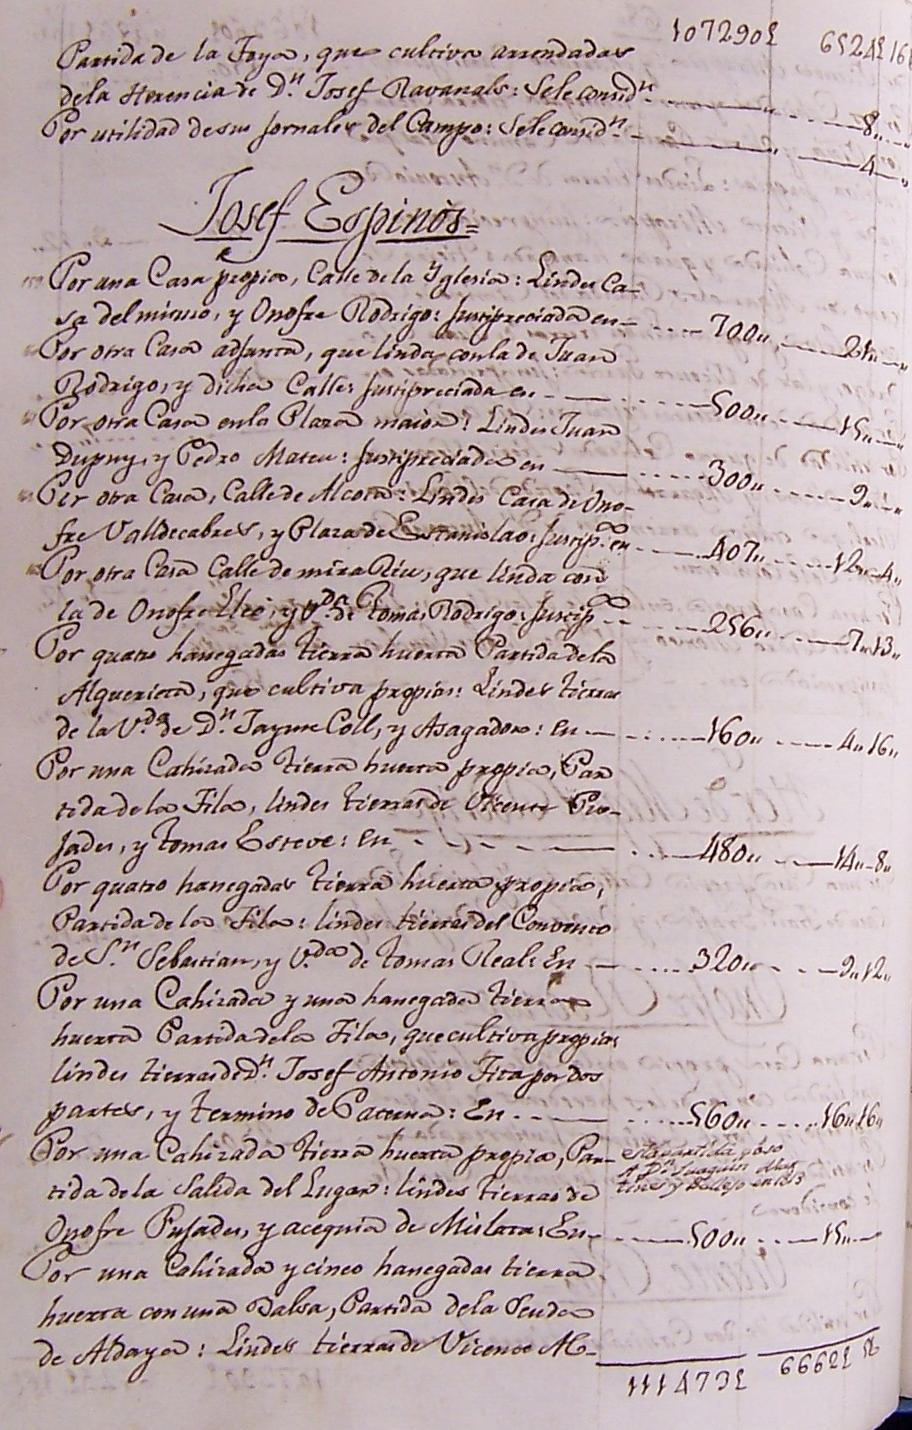 107290£ 6524£ 16
Partida de la Foya, que cultiva arrendadas
dela Herencia de Dn. Josef Ravanals: Sele considn. 8,,
Por utilidad de sus jornales del Campo: Sele considn. 4,,
Josef Espinós=
Por una Casa propia, Calle de la Yglesia: Lindes Ca-
sa del mismo, y Onofre Rodrigo: Justipreciada en 700,, 21,,
Por otra Casa adjunta, que linda con la de Juan
Rodrigo, y dicha Calle: justipreciada en 500,, 15,,
Por otra Casa en la Plaza maior: Lindes Juan
Dupuy, y Pedro Mateu: Justipreciada en 300,, 9,,
Por otra Casa, Calle de Alcora: Lindes Casa de Ono-
fre Valldecabres, y Plaza de Estanislao: justip. en 407,, 12,, 4,,
Por otra Casa Calle de mira Riu, que linda con
la de Onofre, y Vda. de Tomas Rodrigo: justip 256,, 7,, 13,,
Por quatro hanegadas tierra huerta Partida de la
Alquerieta, que cultiva propias: Lindes tierras
de la Vda. de Dn. Jayme Coll, y Asagador: En 160,, 4,, 16,,
Por una Cahizada tierra huerta propia, Par
tida de la Fila, lindes tierras de Vicente Pu-
jades, y Tomas Esteve: En 480,, 14,, 8,,
Por quatro hanegadas tierra huerta propia,
Partida de la Fila: lindes tierras del Convento
de Sn. Sebastian, y Vda. de Tomas Real: En 320,, 9,, 12,,
Por una Cahizada y una hanegada tierra
huerta Partida de la Fila, que cultiva propias
lindes tierras de Dn. Josef Antonio Fita por dos
partes, y termino de Paterna: En 560,, 16,, 16,,
Por una Cahizada tierra huerta propia, Par-
Esta partida paso
A Dn. Juaquin
y Vallejo en 1813
tida de la Salida del Lugar: lindes tierras de
Onofre Pujades, y acequia de Mislata: En 500,, 15,,
Por una Cahizada y cinco hanegadas tierra
huerta con una Balsa, Partida de la Senda
de Aldaya: Lindes tierras de Vicente Al-
111473£ 6662£